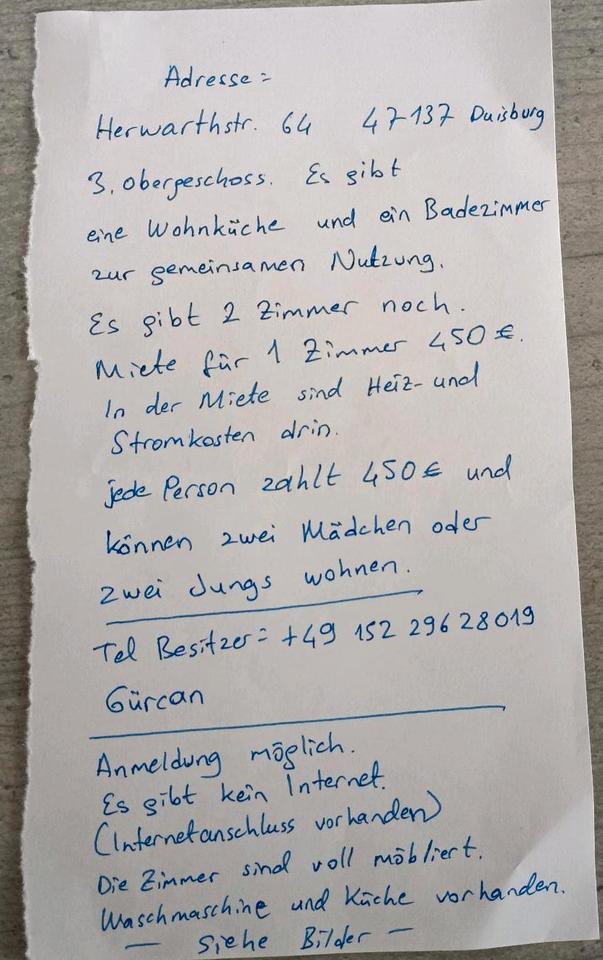 Adresse =
Herwarthstr. 64 47137 Duisburg
3. obergeschoss. Es gibt
eine Wohnküche und ein Badezimmer
zur gemeinsamen Nutzung.
Es gibt 2 Zimmer noch.
Miete für 1 Zimmer 450 €.
In der Miete sind Heiz- und
Stromkosten drin.
jede Person zahlt 450 € und
können zwei Mädchen oder
zwei Jungs wohnen.
Tel Besitzer = +49 152 296 28019
Gürcan
Anmeldung möglich.
Es gibt kein Internet.
(Internetanschluss vorhanden)
Die Zimmer sind voll möbliert.
Waschmaschine und Küche vorhanden.
— Siehe Bilder —